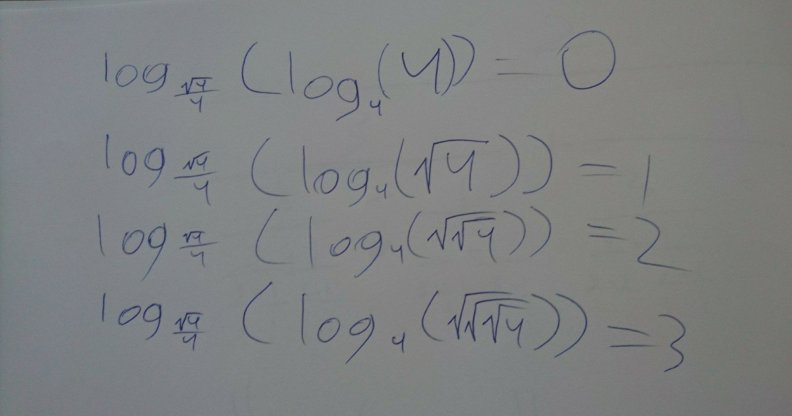 log_{√4/4} (log_4(4)) = 0
log_{√4/4} (log_4(√4)) = 1
log_{√4/4} (log_4(√√4)) = 2
log_{√4/4} (log_4(√√√4)) = 3